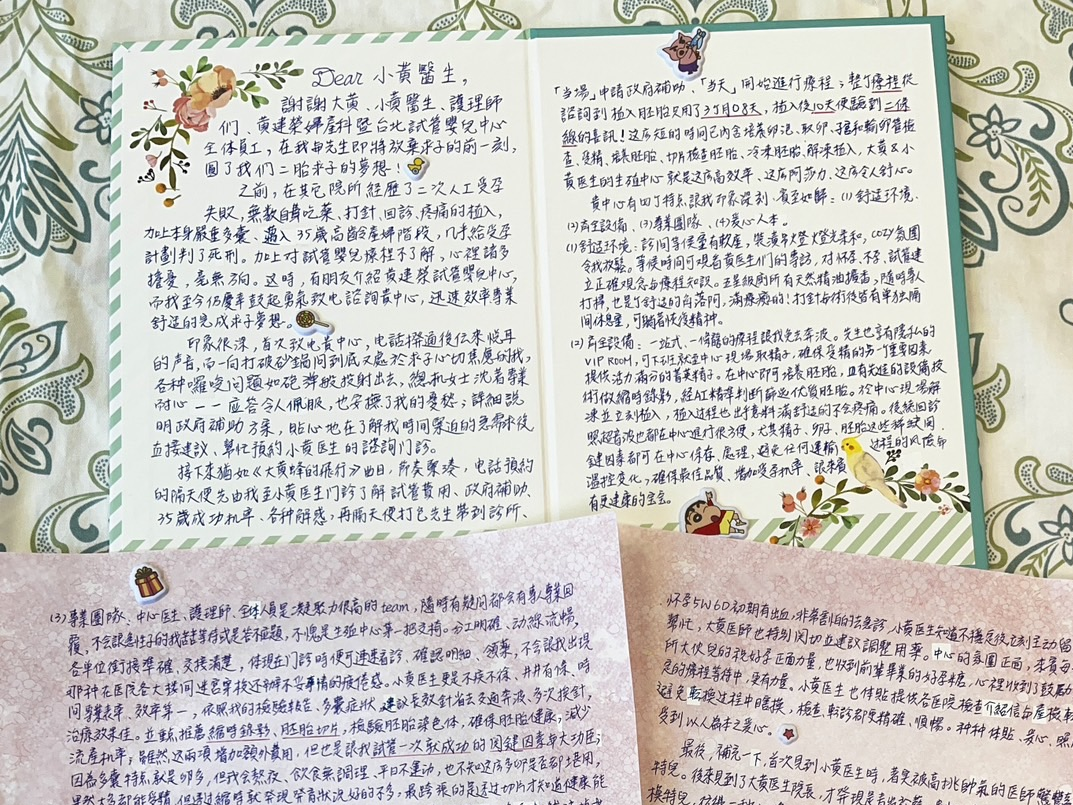 Dear 小黃醫生,
謝謝大黃、小黃醫生、護理師
們、黃建榮婦產科暨台北試管嬰兒中心
全体員工,在我与先生即將放棄求子的前一刻,
圓了我們二胎求子的夢想!
之前,在其它院所經歷了二次人工受孕
失敗,無數自費吃藥、打針、回診、疼痛的植入,
加上本身嚴重多囊、邁入35歲高齡產婦階段,几乎給受孕
計劃判了死刑。加上对試管嬰兒療程不了解,心裡諸多
擔憂,毫無方向。这時,有朋友介紹黃建榮試管嬰兒中心,
而我至今仍慶幸鼓起勇氣致电諮詢貴中心,迅速效率專業
舒适的完成求子夢想。
印象很深,首次致电貴中心,电話接通後传來悅耳
的声音,而一向打破砂鍋問到底又處於求子心切焦慮的我,
各种囉唆问題如砲彈般投射出去,總机女士沈著專業
耐心一一应答令人佩服,也安撫了我的憂愁;詳細說
明政府補助方案,貼心地在了解我時间緊迫的急需求後
直接建议、幫忙預約小黃医生的諮詢门診。
接下來猶如《大黃蜂的飛行》曲目,節奏緊湊,电話預約
的隔天便先由我至小黃医生门診了解試管費用、政府補助、
35歲成功机率、各种解惑,再隔天便打包先生帶到診所、
「当場」申請政府補助、「当天」開始進行療程;整个療程從
諮詢到植入胚胎只用了3个月08天,植入後10天便驗到二條
線的喜訊!这麼短的時间已內含培養卵泡、取卵、子宮和輸卵管檢
查、受精、培養胚胎、切片檢查胚胎、冷凍胚胎、解凍植入,大黃&小
黃医生的生殖中心就是这麼高效率、这麼阿莎力、这麼令人舒心。
貴中心有四个特点讓我印象深刻、賓至如歸:(1)舒适环境、
(2)齊全設備、(3)專業團隊、(4)愛心人本。
(1)舒适环境:診间等候室有軟座,裝潢灯光柔和,COZY氛围
令我放鬆。等候時间可現看黃医生们的專訪,对怀孕、不孕、試管建
立正確观念与療程知識。五星級廁所有天然精油擴香,隨時有人
打掃,也是个舒适的角落啊,滿療癒的!打針与術後皆有單独隔
间休息室,可躺著恢復精神。
(2)齊全設備:一站式、一條龍的療程讓我免去奔波。先生也享有隱私的
VIP ROOM,可不必就至中心現場取精子,確保受精的另一重要因素
提供活力滿分的菁英精子。在中心即可培養胚胎,且有先進的設備技
術做縮時錄影,經AI精準判断篩选优質胚胎。於中心現場解
凍並立刻植入,植入过程也出乎意料滿舒适的不会疼痛。後続回診
照超音波也都在中心進行很方便,尤其精子、卵子、胚胎这些稀缺関
鍵因素都可在中心保存、處理,避免任何運輸过程的风險和
溫控变化,確保最佳品質、增加受孕机率、讓寶寶
有更健康的宝宝。
(3)專業團隊、中心医生、護理師、全体人員是凝聚力很高的team,隨時有疑问都会有專人專業回
覆,不会讓急性好的我苦苦等待或是答非題,不愧是生殖中心第一把交椅。分工明確、动線流暢,
各单位銜接準確、交接清楚,使現在门診時便可速速看診、確認明細、領藥,不会讓我出現
那种在医院各大樓间迷宮穿梭还辦不妥事情的疲倦感。小黃医生更是不疾不徐、井井有條、時
间等義率、效率第一,依照我的檢驗報告、多囊症狀、建议長效針省去交通奔波、多次挨針,
治療效果佳。並主动推薦縮時錄影、胚胎切片,檢驗胚胎染色体,確保胚胎健康,減少
流產机率;雖然这兩項增加額外費用,但也是讓我試管一次就成功的関鍵因素与大功臣;
因為多囊特点就是卵多,但我会熬夜、飲食無調理、平日不運动,也不知这麼多卵是否都堪用,
果然大多都能受精,但透过縮時就發現發育狀況好的不多,最跨張的是透过切片才知道健康能
怀孕5W6D初期有出血,非常害怕的急診,小黃医生知道不播完後立刻主动留
幫忙,大黃医師也特別関切並建议調整用藥。中心的氛围正面,來賓每
所大使兒的祝好孕正面力量,也收到前輩畢業的好孕糖,心裡收到了鼓勵
足的療程等待中,更有力量。小黃医生也体貼提供各医院檢查介紹信与產檢
避免転換过程中瞎摸,檢查、転診都更精確、順暢。种种体貼、愛心、照
受到以人為本之愛心。
最後,補充一下,首次見到小黃医生時,着实被高挑帥氣的医師驚艷
特兒。後來見到了大黃医生院長,才發現是